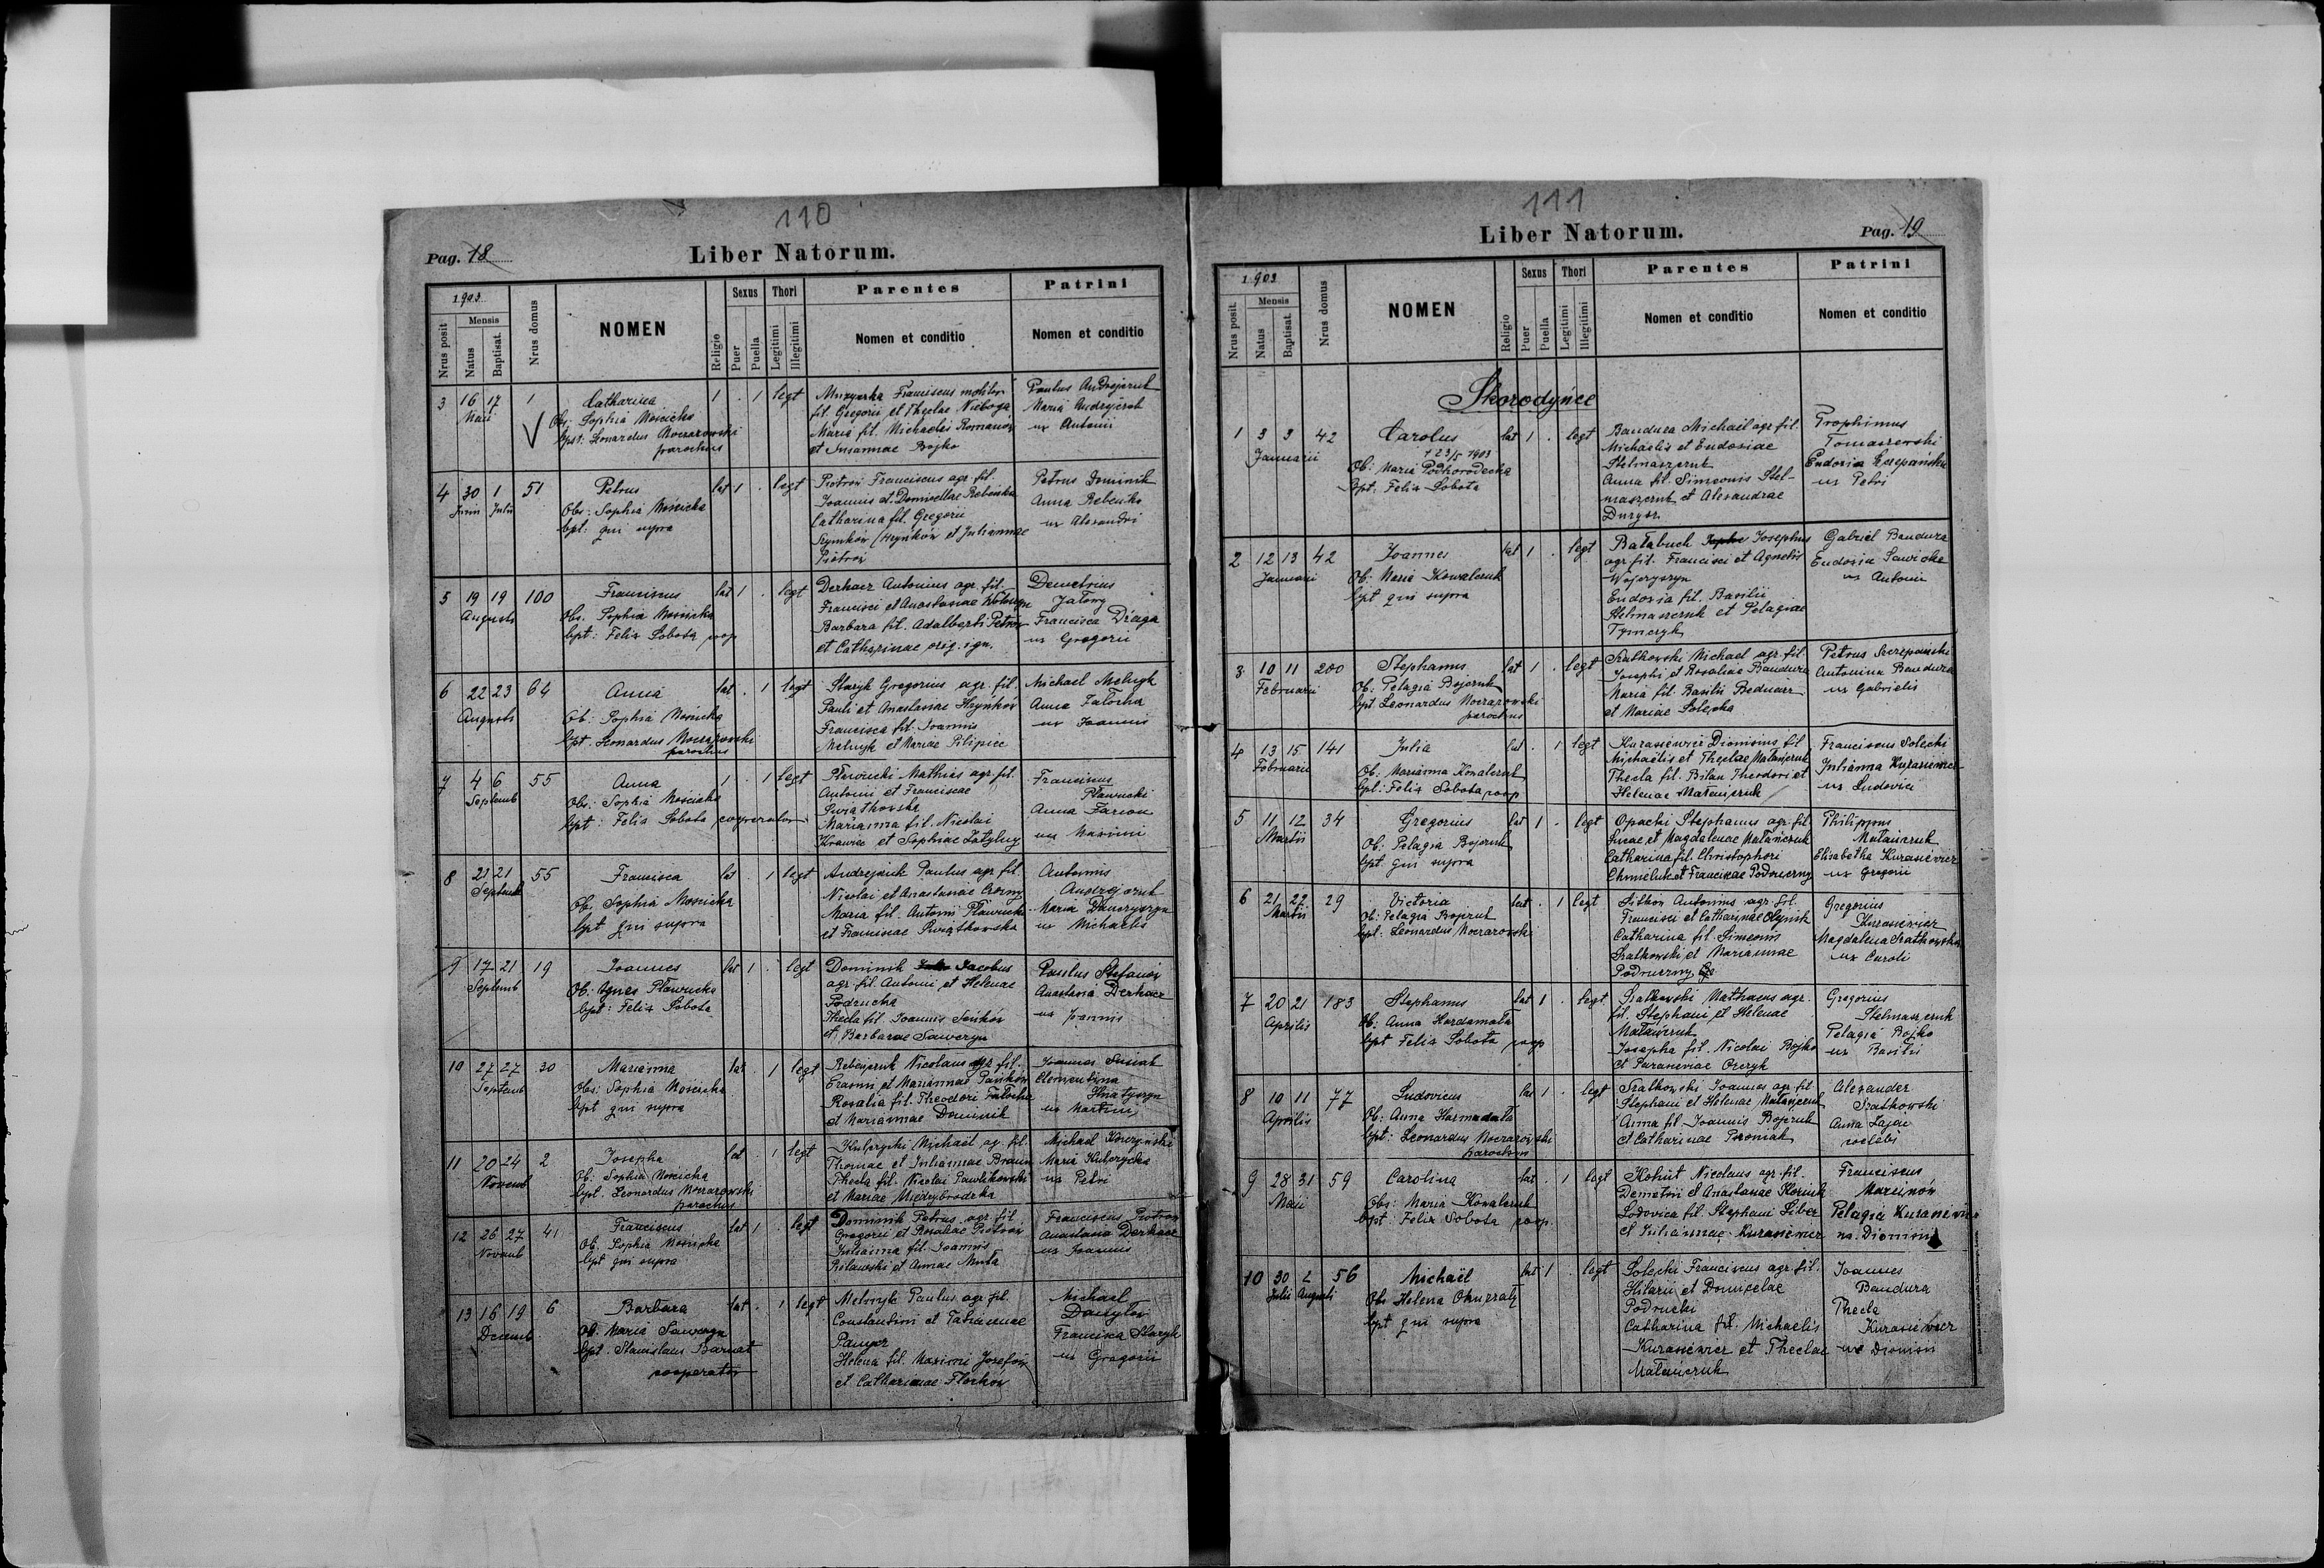 110
Pag. 18
Liber Natorum.
1903
Nrus posit
Mensis
Natus
Baptisat.
Nrus domus
NOMEN
Religio
Sexus
Puer
Puella
Thori
Legitimi
Illegitimi
Parentes
Nomen et conditio
Patrini
Nomen et conditio
3 16 17 1 Catharina 1 . 1 legt
Maii
Obs: Sophia Mościcka
bpt: Leonardus Moczarowski
parochus
Franciscus molitor
fil. Gregorii et Theclae Nieboga
Maria fil. Michaelis Romanów
et Susannae Bojko
Paulus Andrejczuk
Maria Andrejczuk
ux Antonii
4 30 1 51 Petrus lat 1 . legt
Junii Julii
Obs: Sophia Mościcka
bpt. qui supra
Piotrów Franciscus agr. fil.
Joannis et Domicellae Rebeńka
Catharina fil. Gregorii
Szymków (Heynków et Juliannae
Piotrów
Petrus Dominik
Anna Rebeńka
ux Alexandri
5 19 19 100 Franciscus lat 1 . legt
Augusti
Obs. Sophia Mościcka
bpt: Felix Sobota coop
Derkacz Antonius agr. fil.
Francisci et Anastasiae
Barbara fil. Adalberti Petrów
et Catharinae orig. ign.
Demetrius
Jatony
Francisca Draga
ux Gregorii
6 22 23 64 Anna lat . 1 legt
Augusti
Ob: Sophia Mościcka
bpt. Leonardus Moczarowski
parochus
Staryk Gregorius agr. fil.
Pauli et Anastasiae Heynków
Francisca fil. Joannis
Melnyk et Mariae Pilipiec
Michael Melnyk
Anna Fatocha
ux Joannis
7 4 6 55 Anna 1 . 1 legt
Septemb
Obs: Sophia Mościcka
bpt: Felix Sobota cooperator
Pławucki Mathias agr. fil.
Antonii et Franciscae
Swiatkowska
Marianna fil. Nicolai
Krawiec et Sophiae Zatylny
Franciscus
Pławucki
Anna Farion
ux Maximi
8 21 21 55 Francisca lat . 1 legt
Septemb
Ob: Sophia Mościcka
bpt qui supra
Andrejczuk Paulus agr. fil.
Nicolai et Anastasiae Czorny
Maria fil. Antonii Pławucki
et Franciscae Swiątkowska
Antonius
Andrejczuk
Maria Dauczyszyn
ux Michaelis
9 17 21 19 Joannes lat 1 . legt
Septemb
Ob: Agnes Pławucka
bpt: Felix Sobota
Dominik Jacobus
agr. fil. Antonii et Helenae
Podrucka
Thecla fil. Joannis Seńków
et Barbarae Saweryn
Paulus Stefanów
Anastasia Derkacz
ux Joannis
10 27 27 30 Marianna lat . 1 legt
Septemb
Obs: Sophia Mościcka
bpt qui supra
Rebejczuk Nicolaus agr. fil.
Erasmi et Mariannae Pańków
Rosalia fil. Theodori Fatocha
et Mariannae Dominik
Joannes Susiak
Clementina
Hnatyszyn
ux Martini
11 20 24 2 Josepha lat . 1 legt
Novemb
Ob. Sophia Mościcka
bpt. Leonardus Moczarowski
parochus
Kulczycki Michaël ag. fil.
Thomae et Juliannae Braun
Thecla fil. Nicolai Pawlikowski
et Mariae Miedzybrodzka
Michael Kurzyński
Maria Kulczycka
ux Petri
12 26 27 41 Franciscus lat 1 . legt
Novemb
Ob. Sophia Mościcka
bpt qui supra
Dominik Petrus agr. fil.
Gregorii et Rosaliae Piotrów
Julianna fil. Joannis
Pielawski et Annae Muta
Franciscus Piotrów
Anastasia Derkacz
ux Joannis
13 16 19 6 Barbara lat . 1 legt
Decemb
Ob. Maria Saweryn
bpt. Stanislaus Barnat
cooperator
Melnyk Paulus agr. fil.
Constantini et Tatiannae
Panyor
Helena fil. Maximi Josefów
et Catharinae Florków
Michael
Danylów
Francisca Staryk
ux Gregorii
111
Liber Natorum.
Pag. 19
1903
Nrus posit.
Mensis
Natus
Baptisat.
Nrus domus
NOMEN
Religio
Sexus
Puer
Puella
Thori
Legitimi
Illegitimi
Parentes
Nomen et conditio
Patrini
Nomen et conditio
Skorodyńce
1 3 3 42 Carolus lat 1 . legt
Januarii
† 23/5 1903
Ob: Maria Podhorodecka
bpt. Felix Sobota
Bandura Michaël agr. fil.
Michaelis et Eudosiae
Stelmaszczuk
Anna fil. Simeonis Stel-
maszczuk et Alexandrae
Trophimus
Tomaszewski
Eudosia Szczepańska
ux Petri
2 12 13 42 Joannes lat 1 . legt
Januarii
Ob: Maria Kowalczuk
bpt qui supra
Bałabuch Josephus
agr. fil. Francisci et Agnetis
Wojczyszyn
Eudosia fil. Basilii
Stelmaszczuk et Pelagiae
Tymczyk
Gabriel Bandura
Eudosia Sawicka
ux Antonii
3 10 11 200 Stephanus lat 1 . legt
Februarii
Ob: Pelagia Bojczuk
bpt Leonardus Moczarowski
parochus
Szatkowski Michael agr. fil.
Josephi et Rosaliae Bandura
Maria fil. Basilii Bednarz
et Mariae Solecka
Petrus Szczepański
Antonina Bandura
ux Gabrielis
4 13 15 141 Julia lat . 1 legt
Februarii
Ob: Marianna Kowalczuk
bpt: Felix Sobota coop
Kurasiewicz Dionisius fil
Michaëlis et Theclae Matańczuk
Thecla fil. Bilan Theodori et
Helenae Matańczuk
Franciscus Solecki
Julianna Kurasiewicz
ux Ludovici
5 11 12 34 Gregorius lat 1 . legt
Martii
Ob: Pelagia Bojczuk
bpt. qui supra
Opacki Stephanus agr. fil.
Lucae et Magdalenae Matańczuk
Catharina fil. Christophori
Chmeluk et Franciscae Podruczny
Philippus
Matańczuk
Elisabetha Kurasiewicz
ux Gregorii
6 21 22 29 Victoria lat . 1 legt
Martii
Ob: Pelagia Bojczuk
bpt: Leonardus Moczarowski
Sitkow Antonius agr. fil.
Francisci et Catharinae Olejnik
Catharina fil. Simeonis
Szatkowski et Mariannae
Podruczny
Gregorius
Kurasiewicz
Magdalena Szatkowska
ux Caroli
7 20 21 183 Stephanus lat 1 . legt
Aprilis
Ob: Anna Hardamata
bpt Felix Sobota coop
Szatkowski Mathaeus agr.
fil. Stephani et Helenae
Matańczuk
Josepha fil. Nicolai Bojko
et Parasceviae Orczyk
Gregorius
Stelmaszczuk
Pelagia Bojko
ux Basilii
8 10 11 77 Ludovicus lat 1 . legt
Aprilis
Ob: Anna Harmadata
bpt: Leonardus Moczarowski
parochus
Szatkowski Joannes agr. fil
Stephani et Helenae Matańczuk
Anna fil. Joannis Bojczuk
et Catharinae Pozniak
Alexander
Szatkowski
Anna Zając
coelebs
9 28 31 59 Carolina lat . 1 legt
Maii
Obs: Maria Kowalczuk
bpt: Felix Sobota coop.
Kohut Nicolaus agr. fil.
Demetrii et Anastasiae
Lodovica fil. Stephani Liber
et Juliannae Kurasiewicz
Franciscus
Marcinów
Pelagia Kurasiewicz
ux. Dionisii
10 30 2 56 Michaël lat 1 . legt
Julii Augusti
Obs Helena
bpt qui supra
Solecki Franciscus agr. fil.
Hilarii et Domicelae
Podrucki
Catharina fil. Michaelis
Kurasiewicz et Theclae
Matańczuk
Joannes
Bandura
Thecla
Kurasiewicz
ux Dionisii